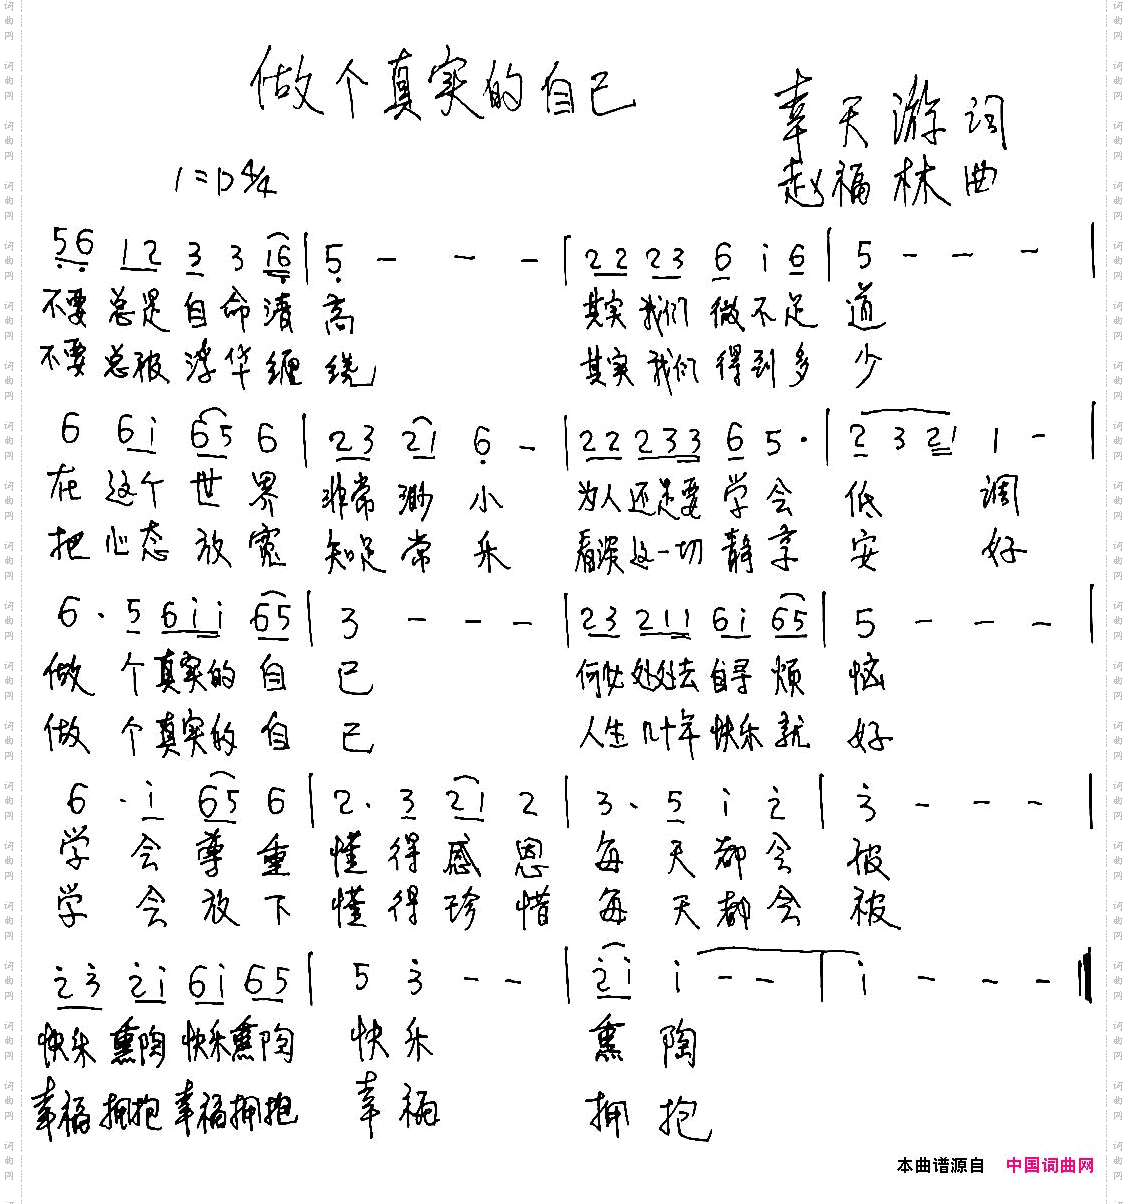 做个真实的自己
辛天游词
赵福林曲
1=D 4/4
56 12 3 3 16 | 5 - - - | 22 23 6 i 6 | 5 - - - |
不要总是自命清高 其实我们微不足道
不要总被浮华缠绕 其实我们得到多少
6 6i 65 6 | 23 21 6 - | 22 233 6 5· | 2 3 21 1 - |
在这个世界 非常渺小 为人还是要学会低调
把心态放宽 知足常乐 看淡这一切静享安好
6· 5 6ii 65 | 3 - - - | 23 211 6i 65 | 5 - - - |
做个真实的自己 何必处处去自寻烦恼
做个真实的自己 人生几十年快乐就好
6· i 65 6 | 2· 3 21 2 | 3· 5 i 2 | 3 - - - |
学会尊重 懂得感恩 每天都会被
学会放下 懂得珍惜 每天都会被
23 2i 6i 65 | 5 3 - - | 2i i - - | i - - - ‖
快乐熏陶快乐熏陶 快乐熏陶
幸福拥抱幸福拥抱 幸福拥抱
本曲谱源自 中国词曲网